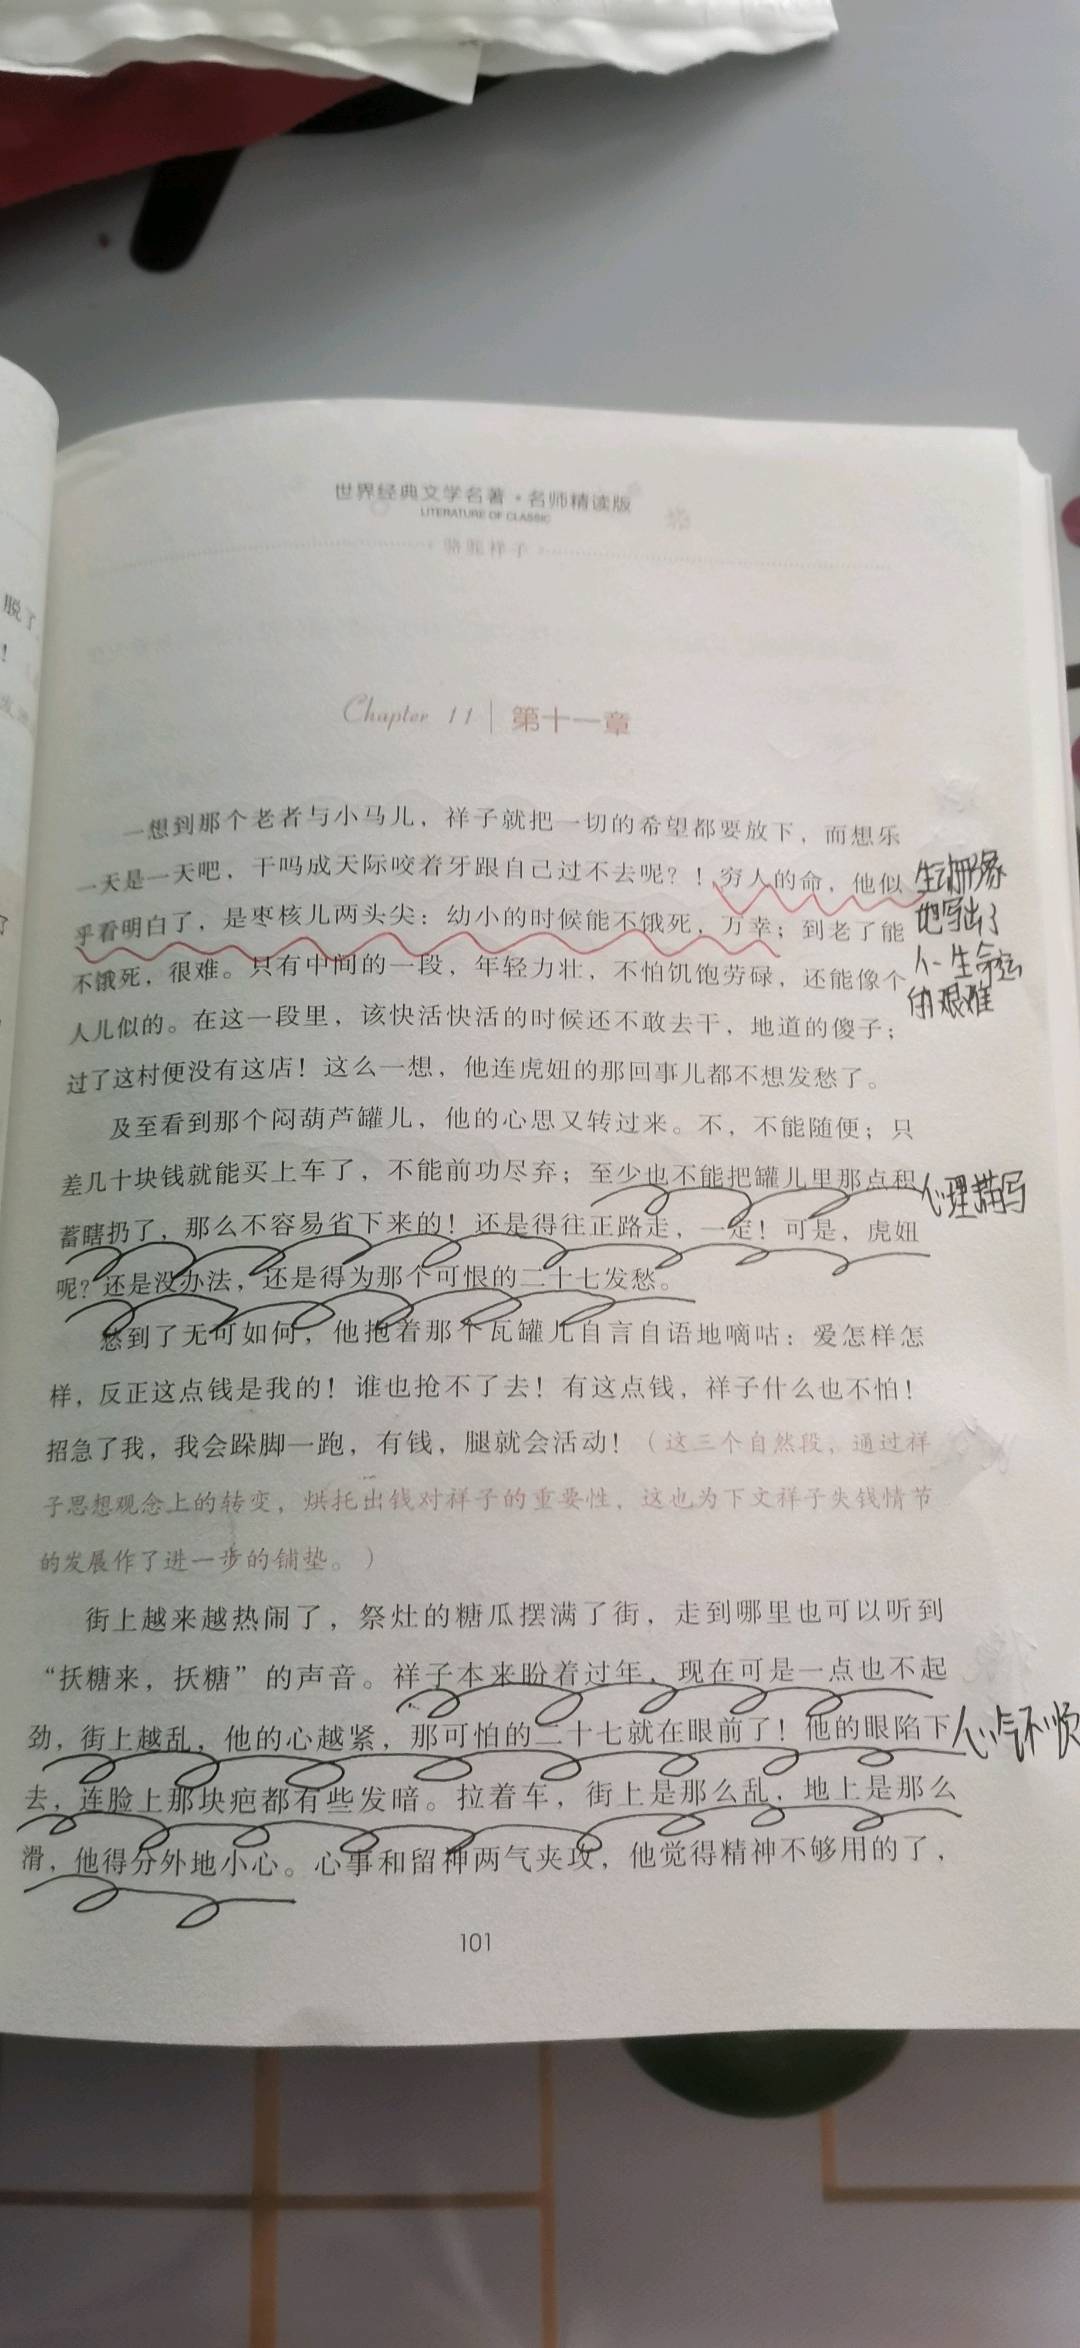 脱了
！
世界经典文学名著·名师精读版
LITERATURE OF CLASSIC
骆驼祥子
Chapter 11 | 第十一章
一想到那个老者与小马儿，祥子就把一切的希望都要放下，而想乐
一天是一天吧，干吗成天际咬着牙跟自己过不去呢？！穷人的命，他似
乎看明白了，是枣核儿两头尖：幼小的时候能不饿死，万幸；到老了能
不饿死，很难。只有中间的一段，年轻力壮，不怕饥饱劳碌，还能像个
人儿似的。在这一段里，该快活快活的时候还不敢去干，地道的傻子；
过了这村便没有这店！这么一想，他连虎妞的那回事儿都不想发愁了。
生动形象
地写出了
人一生命运
的艰难
及至看到那个闷葫芦罐儿，他的心思又转过来。不，不能随便；只
差几十块钱就能买上车了，不能前功尽弃；至少也不能把罐儿里那点积
蓄瞎扔了，那么不容易省下来的！还是得往正路走，一定！可是，虎妞
呢？还是没办法，还是得为那个可恨的二十七发愁。
心理描写
愁到了无可如何，他抱着那个瓦罐儿自言自语地嘀咕：爱怎样怎
样，反正这点钱是我的！谁也抢不了去！有这点钱，祥子什么也不怕！
招急了我，我会跺脚一跑，有钱，腿就会活动！（这三个自然段，通过祥
子思想观念上的转变，烘托出钱对祥子的重要性，这也为下文祥子失钱情节
的发展作了进一步的铺垫。）
街上越来越热闹了，祭灶的糖瓜摆满了街，走到哪里也可以听到
“扷糖来，扷糖”的声音。祥子本来盼着过年，现在可是一点也不起
劲，街上越乱，他的心越紧，那可怕的二十七就在眼前了！他的眼陷下
去，连脸上那块疤都有些发暗。拉着车，街上是那么乱，地上是那么
滑，他得分外地小心。心事和留神两气夹攻，他觉得精神不够用的了，
心气不顺
101